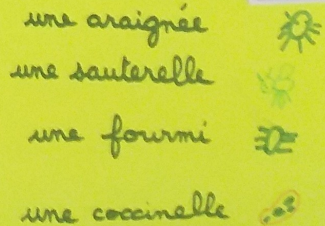 une araignée
une sauterelle
une fourmi
une coccinelle